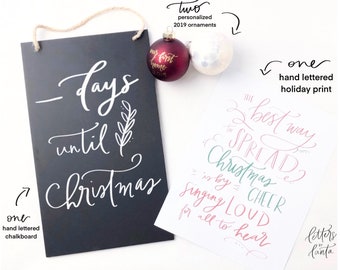 two
personalized
2019 ornaments
my first
home
one
hand lettered
holiday print
_ days
until
Christmas
the
best way
to
SPREAD
Christmas
is by CHEER
singing LOUD
for all to hear
one
hand lettered
chalkboard
letters